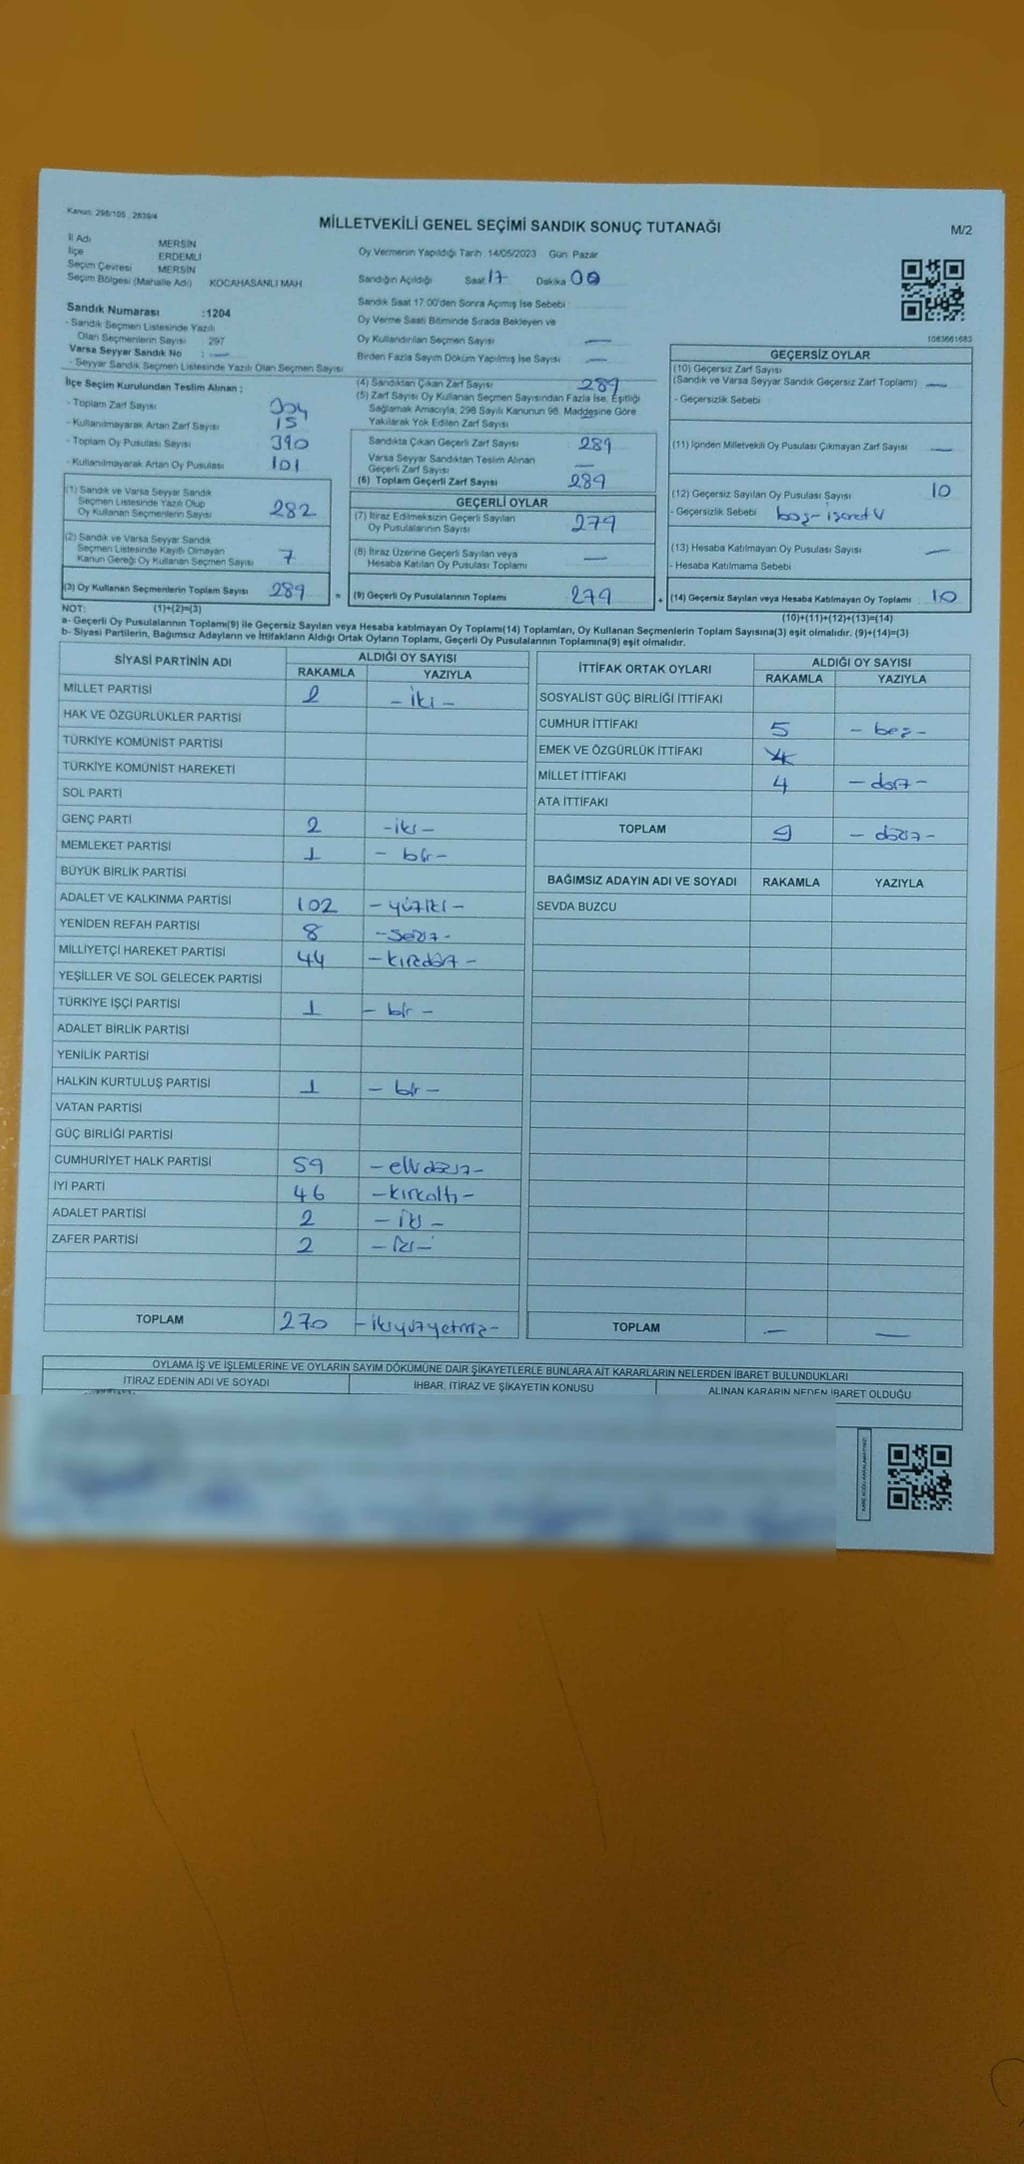 Kanun: 298/105 , 2839/4
MİLLETVEKİLİ GENEL SEÇİMİ SANDIK SONUÇ TUTANAĞI
M/2
İl Adı MERSİN
İlçe ERDEMLİ
Seçim Çevresi MERSİN
Seçim Bölgesi (Mahalle Adı) KOCAHASANLI MAH
Oy Vermenin Yapıldığı Tarih: 14/05/2023 Gün: Pazar
Sandığın Açıldığı Saat 17 Dakika 00
Sandık Saat 17:00'den Sonra Açımış İse Sebebi
Oy Verme Saati Bitiminde Sırada Bekleyen ve
Oy Kullandırılan Seçmen Sayısı —
Birden Fazla Sayım Döküm Yapılmış İse Sayısı —
Sandık Numarası :1204
- Sandık Seçmen Listesinde Yazılı
Olan Seçmenlerin Sayısı 297
Varsa Seyyar Sandık No : —
- Seyyar Sandık Seçmen Listesinde Yazılı Olan Seçmen Sayısı
İlçe Seçim Kurulundan Teslim Alınan ;
- Toplam Zarf Sayısı
- Kullanılmayarak Artan Zarf Sayısı 15
- Toplam Oy Pusulası Sayısı 390
- Kullanılmayarak Artan Oy Pusulası 101
(1) Sandık ve Varsa Seyyar Sandık
Seçmen Listesinde Yazılı Olup
Oy Kullanan Seçmenlerin Sayısı 282
(2) Sandık ve Varsa Seyyar Sandık
Seçmen Listesinde Kayıtlı Olmayan
Kanun Gereği Oy Kullanan Seçmen Sayısı 7
(3) Oy Kullanan Seçmenlerin Toplam Sayısı 289 =
(4) Sandıktan Çıkan Zarf Sayısı 289
(5) Zarf Sayısı Oy Kullanan Seçmen Sayısından Fazla İse, Eşitliği
Sağlamak Amacıyla, 298 Sayılı Kanunun 98. Maddesine Göre
Yakılarak Yok Edilen Zarf Sayısı
Sandıkta Çıkan Geçerli Zarf Sayısı 289
Varsa Seyyar Sandıktan Teslim Alınan
Geçerli Zarf Sayısı —
(6) Toplam Geçerli Zarf Sayısı 289
GEÇERLİ OYLAR
(7) İtiraz Edilmeksizin Geçerli Sayılan
Oy Pusulalarının Sayısı 279
(8) İtiraz Üzerine Geçerli Sayılan veya
Hesaba Katılan Oy Pusulası Toplamı —
(9) Geçerli Oy Pusulalarının Toplamı 279 +
1083661683
GEÇERSİZ OYLAR
(10) Geçersiz Zarf Sayısı
(Sandık ve Varsa Seyyar Sandık Geçersiz Zarf Toplamı) —
- Geçersizlik Sebebi
(11) İçinden Milletvekili Oy Pusulası Çıkmayan Zarf Sayısı —
(12) Geçersiz Sayılan Oy Pusulası Sayısı 10
- Geçersizlik Sebebi boş-işaretli
(13) Hesaba Katılmayan Oy Pusulası Sayısı —
- Hesaba Katılmama Sebebi
(14) Geçersiz Sayılan veya Hesaba Katılmayan Oy Toplamı 10
NOT: (1)+(2)=(3) (10)+(11)+(12)+(13)=(14)
a- Geçerli Oy Pusulalarının Toplamı(9) ile Geçersiz Sayılan veya Hesaba katılmayan Oy Toplamı(14) Toplamları, Oy Kullanan Seçmenlerin Toplam Sayısına(3) eşit olmalıdır. (9)+(14)=(3)
b- Siyasi Partilerin, Bağımsız Adayların ve İttifakların Aldığı Ortak Oyların Toplamı, Geçerli Oy Pusulalarının Toplamına(9) eşit olmalıdır.
SİYASİ PARTİNİN ADI ALDIĞI OY SAYISI
RAKAMLA YAZIYLA
MİLLET PARTİSİ 2 - iki -
HAK VE ÖZGÜRLÜKLER PARTİSİ
TÜRKİYE KOMÜNİST PARTİSİ
TÜRKİYE KOMÜNİST HAREKETİ
SOL PARTİ
GENÇ PARTİ 2 -iki-
MEMLEKET PARTİSİ 1 - bir-
BÜYÜK BİRLİK PARTİSİ
ADALET VE KALKINMA PARTİSİ 102 - yüziki -
YENİDEN REFAH PARTİSİ 8 -sekiz-
MİLLİYETÇİ HAREKET PARTİSİ 44 -kırkdört-
YEŞİLLER VE SOL GELECEK PARTİSİ
TÜRKİYE İŞÇİ PARTİSİ 1 - bir -
ADALET BİRLİK PARTİSİ
YENİLİK PARTİSİ
HALKIN KURTULUŞ PARTİSİ 1 - bir -
VATAN PARTİSİ
GÜÇ BİRLİĞİ PARTİSİ
CUMHURİYET HALK PARTİSİ 59 -ellidokuz-
İYİ PARTİ 46 -kırkaltı-
ADALET PARTİSİ 2 - iki -
ZAFER PARTİSİ 2 - iki -
TOPLAM 270 -ikiyüzyetmiş-
İTTİFAK ORTAK OYLARI ALDIĞI OY SAYISI
RAKAMLA YAZIYLA
SOSYALİST GÜÇ BİRLİĞİ İTTİFAKI
CUMHUR İTTİFAKI 5 - beş -
EMEK VE ÖZGÜRLÜK İTTİFAKI
MİLLET İTTİFAKI 4 - dört -
ATA İTTİFAKI
TOPLAM 9 - dokuz -
BAĞIMSIZ ADAYIN ADI VE SOYADI RAKAMLA YAZIYLA
SEVDA BUZCU
TOPLAM — —
OYLAMA İŞ VE İŞLEMLERİNE VE OYLARIN SAYIM DÖKÜMÜNE DAİR ŞİKAYETLERLE BUNLARA AİT KARARLARIN NELERDEN İBARET BULUNDUKLARI
İTİRAZ EDENİN ADI VE SOYADI İHBAR, İTİRAZ VE ŞİKAYETİN KONUSU ALINAN KARARIN NEDEN İBARET OLDUĞU